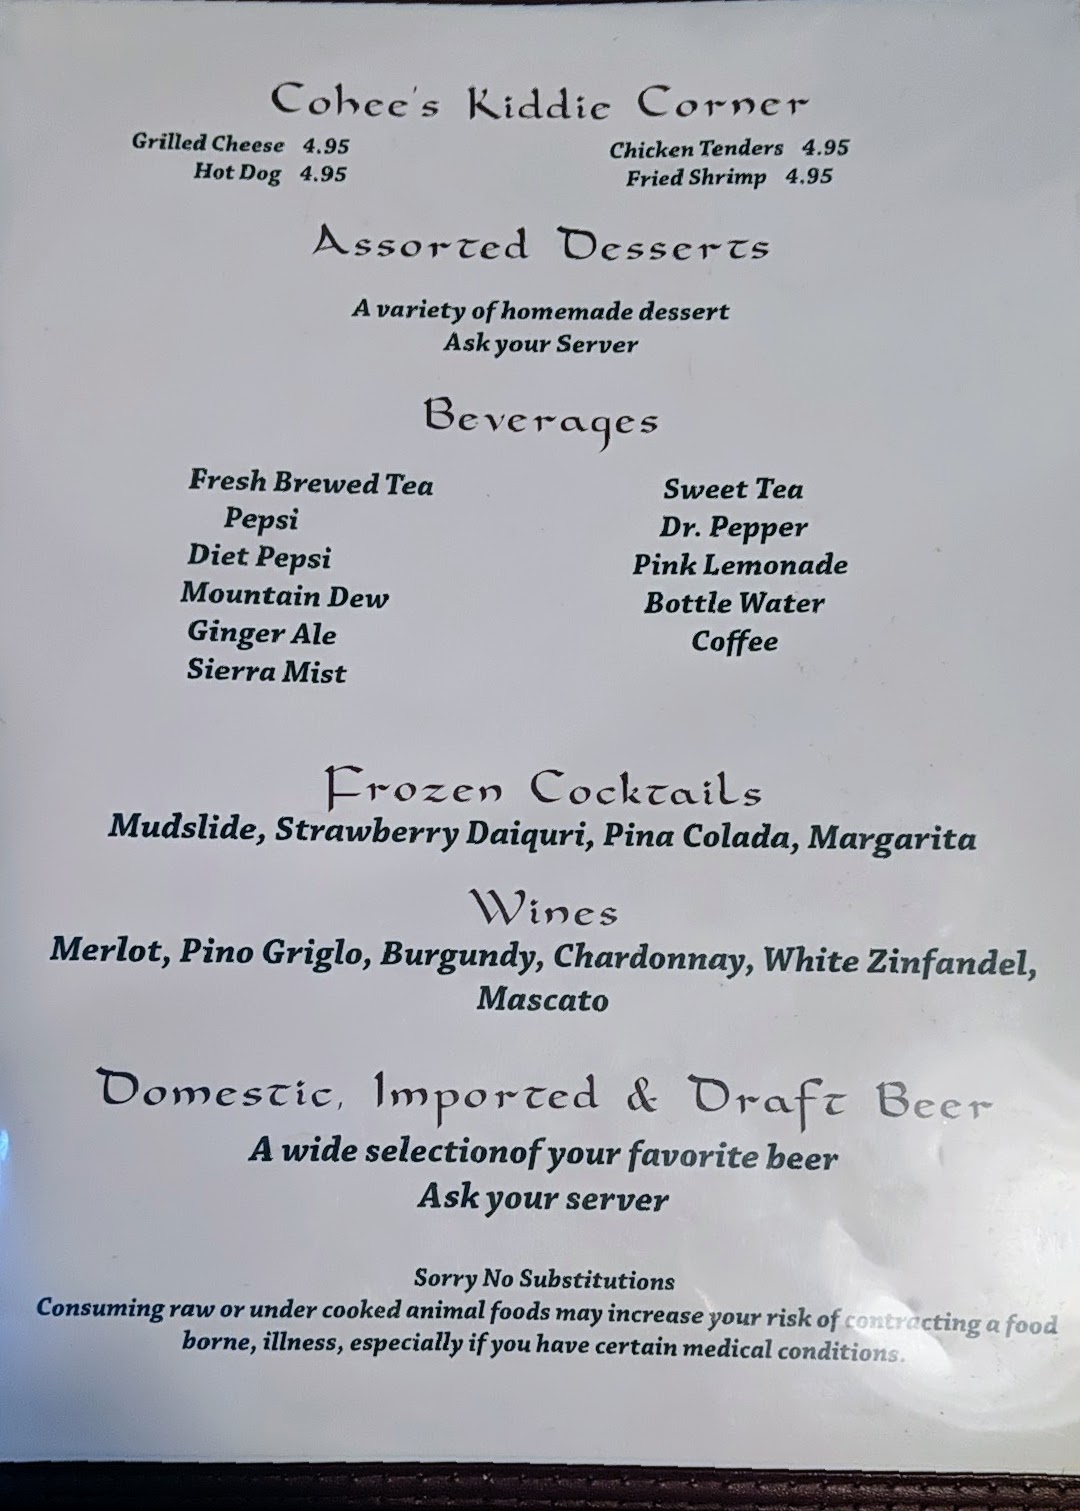 Cohee's Kiddie Corner
Grilled Cheese 4.95
Hot Dog 4.95
Chicken Tenders 4.95
Fried Shrimp 4.95
Assorted Desserts
A variety of homemade dessert
Ask your Server
Beverages
Fresh Brewed Tea
Pepsi
Diet Pepsi
Mountain Dew
Ginger Ale
Sierra Mist
Sweet Tea
Dr. Pepper
Pink Lemonade
Bottle Water
Coffee
Frozen Cocktails
Mudslide, Strawberry Daiquri, Pina Colada, Margarita
Wines
Merlot, Pino Griglo, Burgundy, Chardonnay, White Zinfandel,
Mascato
Domestic, Imported & Draft Beer
A wide selectionof your favorite beer
Ask your server
Sorry No Substitutions
Consuming raw or under cooked animal foods may increase your risk of contracting a food
borne, illness, especially if you have certain medical conditions.